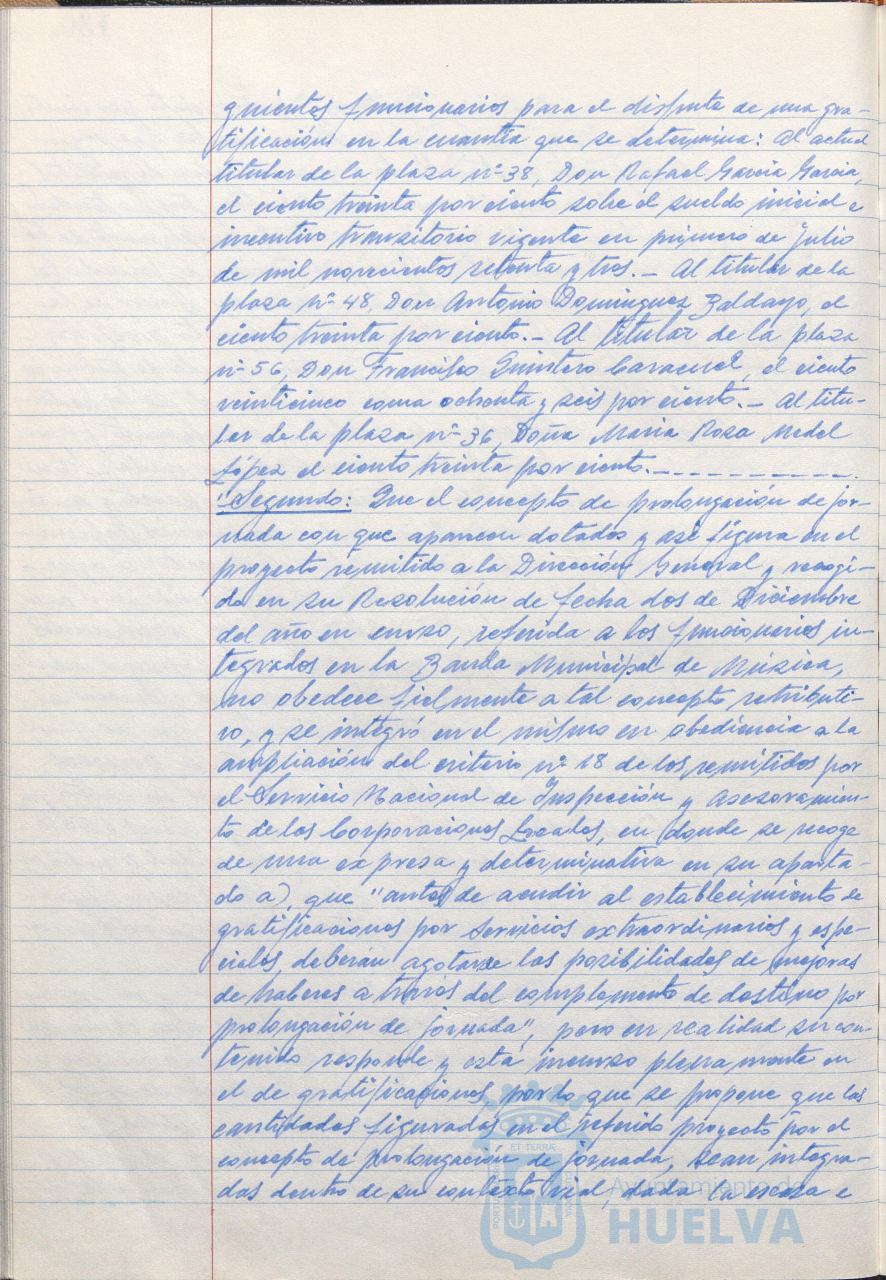 guientes funcionarios para el disfrute de una gra-
tificación en la cuantía que se determina: Al actual
titular de la plaza nº 38, Don Rafael García García,
el ciento treinta por ciento sobre el sueldo inicial e
incentivo transitorio vigente en primero de Julio
de mil novecientos setenta y tres.- Al titular de la
plaza nº 48, Don Antonio Domínguez Baldayo, el
ciento treinta por ciento.- Al titular de la plaza
nº 56, Don Francisco Quintero Caracuel, el ciento
veinticinco coma ochenta y seis por ciento.- Al titu-
lar de la plaza nº 36, Doña María Rosa Medel
López el ciento treinta por ciento.-----------.
"Segundo: Que el concepto de prolongación de jor-
nada con que aparecen dotados y así figura en el
proyecto remitido a la Dirección General y recogi-
do en su Resolución de fecha dos de Diciembre
del año en curso, referida a los funcionarios in-
tegrados en la Banda Municipal de Música,
no obedece fielmente a tal concepto retributi-
vo, y se integró en el mismo en obediencia a la
ampliación del criterio nº 18 de los remitidos por
el Servicio Nacional de Inspección y Asesoramien-
to de las Corporaciones Locales, en donde se recoge
de una expresa y determinativa en su aparta-
do a), que "antes de acudir al establecimiento de
gratificaciones por servicios extraordinarios y espe-
ciales, deberán agotarse las posibilidades de mejoras
de haberes a través del complemento de destino por
prolongación de jornada", pero en realidad su con-
tenido responde y está incurso plenamente en
el de gratificaciones, por lo que se propone que las
cantidades figuradas en el referido proyecto por el
concepto de prolongación de jornada, sean integra-
das dentro de su contexto vial, dada la escasa e
ET TERRÆ
Ayuntamiento de
HUELVA